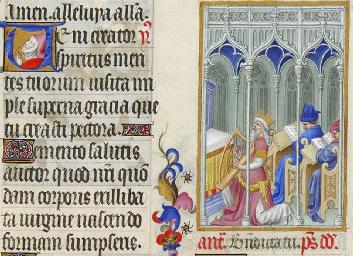 amen. alleluya alla.
Eni creator ỹ.
spiritus men
tes tuorum visita im
ple superna gracia que
tu creasti pectora.
Memento salutis
auctor quod nr̃i quō
dam corporis ex illiba
ta uirgine nascendo
formam sumpseris.
ant̃.